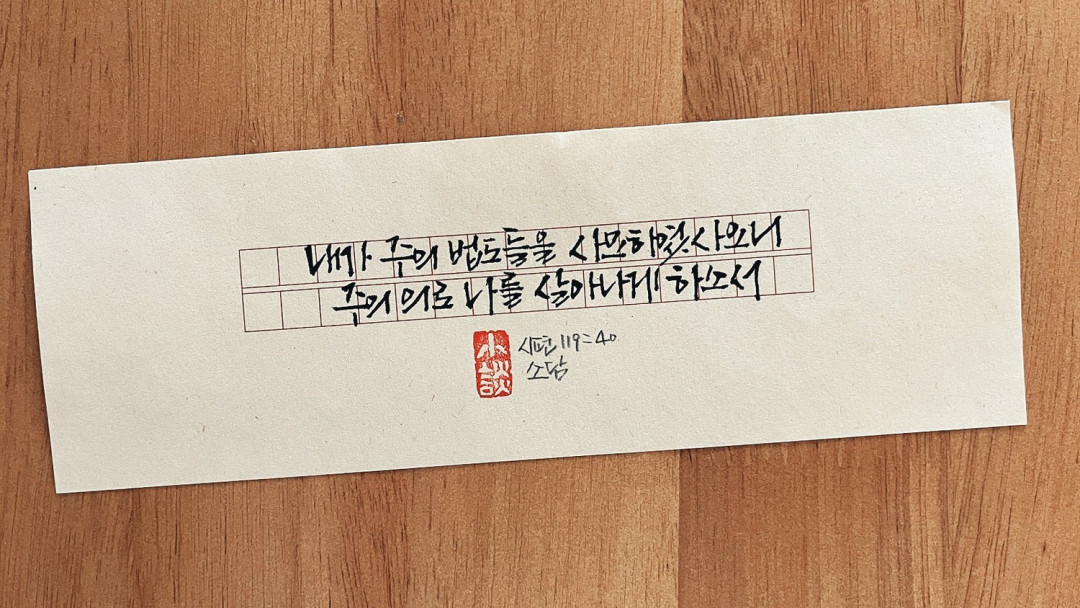 내가 주의 법도들을 사모하였사오니
주의 의로 나를 살아나게 하소서
小談
시편 119:40
소담